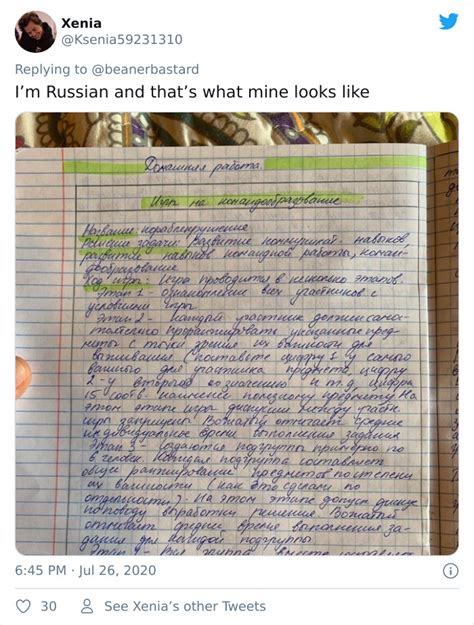 Xenia
@Ksenia59231310
Replying to @beanerbastard
I'm Russian and that's what mine looks like
Домашняя работа.
Игра на командообразование
Название: кораблекрушение
Решение задачи: Развитие коммуникат. навыков,
развитие навыков командной работы, коман-
дообразование
Ход игры: Игра проводится в несколько этапов.
Этап 1 - ознакомление всех участников с
условиями игры
Этап 2 - каждый участник должен само-
тоятельно проранжировать указанные пред-
меты с точки зрения их важности для
выживания (поставьте цифру 1 у самого
важного для участника предмета, цифру
2 - у второго по значению и т.д. цифра
15 соотв. наименее полезному предмету. На
этом этапе игры дискуссии между участн
игры запрещены. Вожатый отмечает среднее
индивидуальное время выполнения задания
Этап 3 - создаются подгруппы примерно по
6 человек. Каждая подгруппа составляет
общее ранжирование предметов по степени
их важности (как это сделали по
отдельности). На этом этапе допуск. дискус
по поводу выработки решения. Вожатый
отмечает среднее время выполнения за-
дания для каждой подгруппы
Этап 4 - Вся группа вместе составляет
6:45 PM · Jul 26, 2020
30 See Xenia's other Tweets